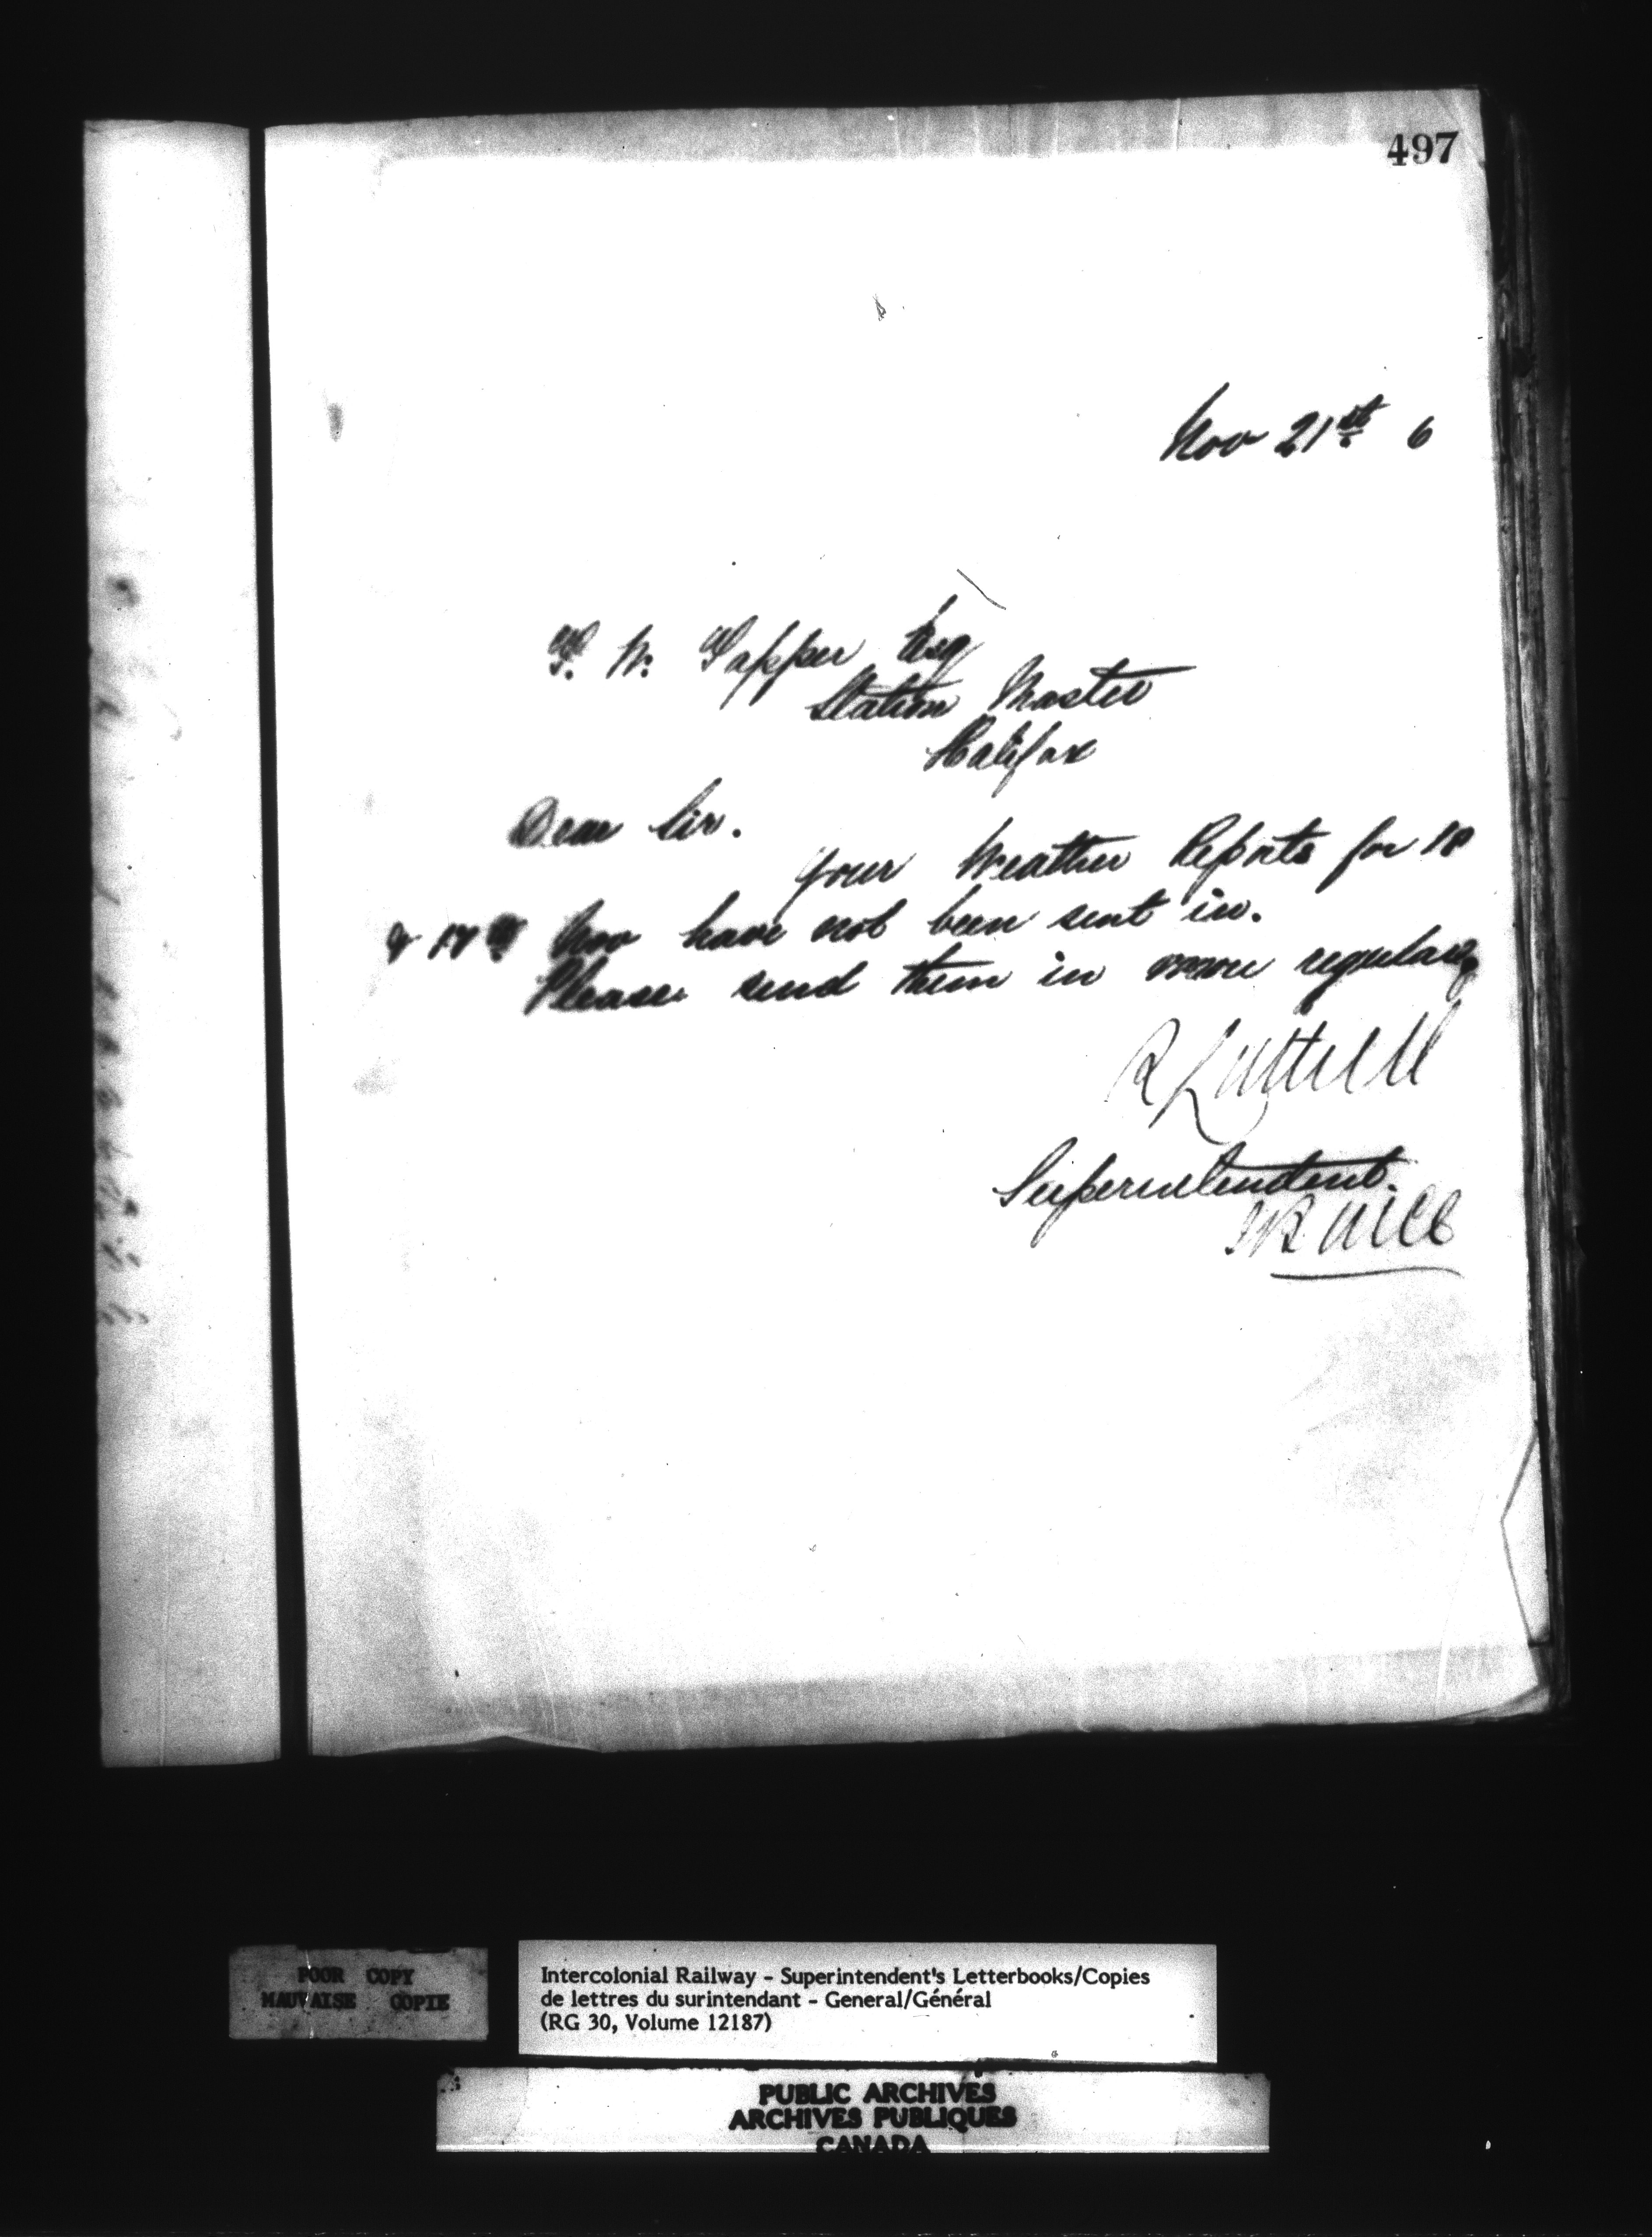 497
Nov 21st 6
T. W. Tapper Esq
Station Master
Halifax
Dear Sir.
Your Weather Reports for 18
& 17th Nov have not been sent in.
Please send them in more regular
R Luttrell
Superintendent.
POOR COPY
MAUVAISE COPIE
Intercolonial Railway - Superintendent's Letterbooks/Copies
de lettres du surintendant - General/Général
(RG 30, Volume 12187)
PUBLIC ARCHIVES
ARCHIVES PUBLIQUES
CANADA